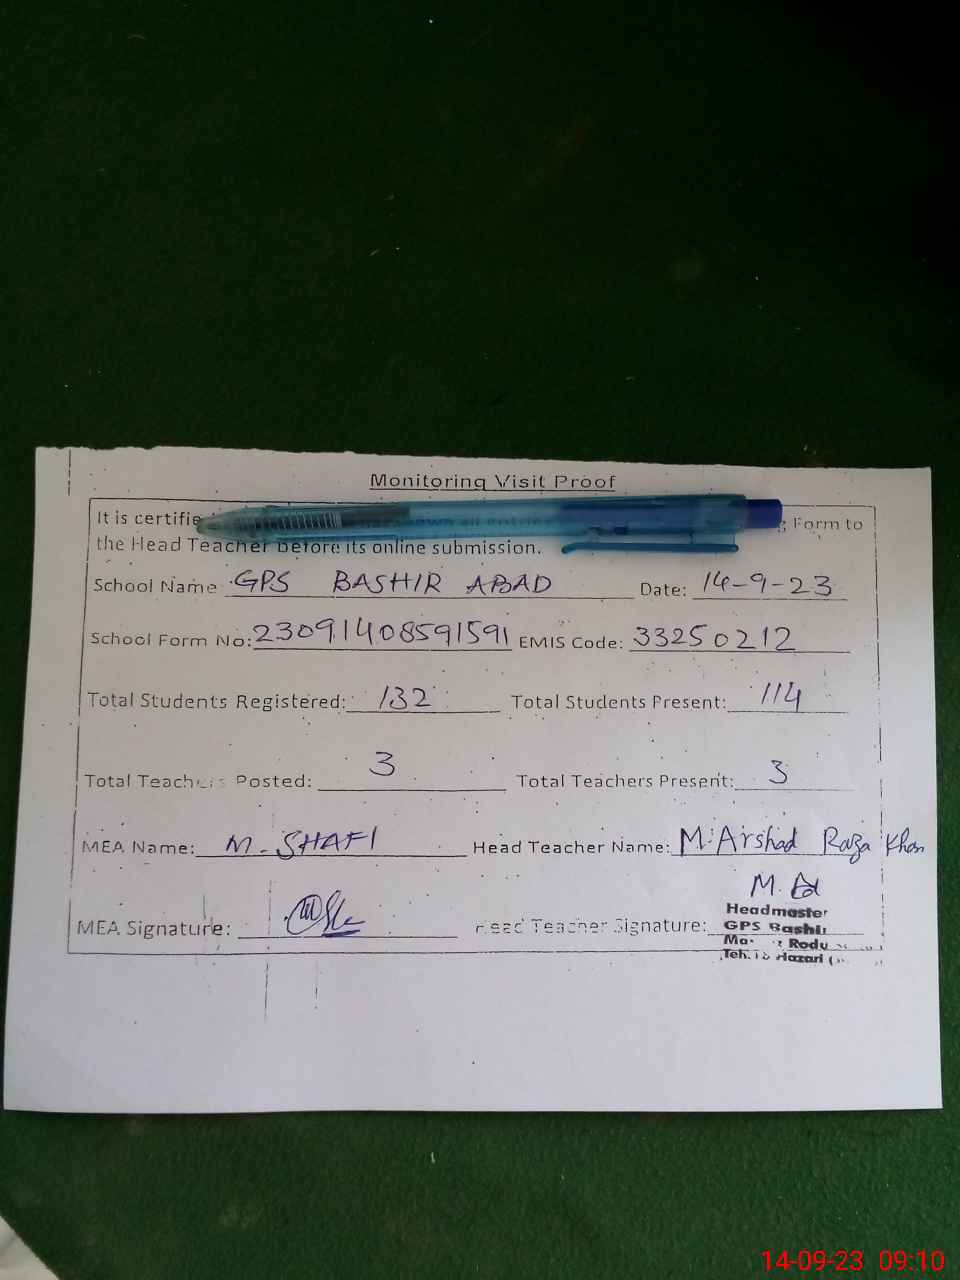 Monitoring Visit Proof
It is certified Form to
the Head Teacher before its online submission.
School Name GPS BASHIR ABAD Date: 14-9-23
School Form No: 23091408591591 EMIS Code: 33250212
Total Students Registered: 132 Total Students Present: 114
Total Teachers Posted: 3 Total Teachers Present: 3
MEA Name: M. SHAFI Head Teacher Name: M. Arshad Raza Khan
MEA Signature: Head Teacher Signature:
Headmaster
GPS Bashir
Rodu
Teh. 18 Hazari
14-09-23 09:10